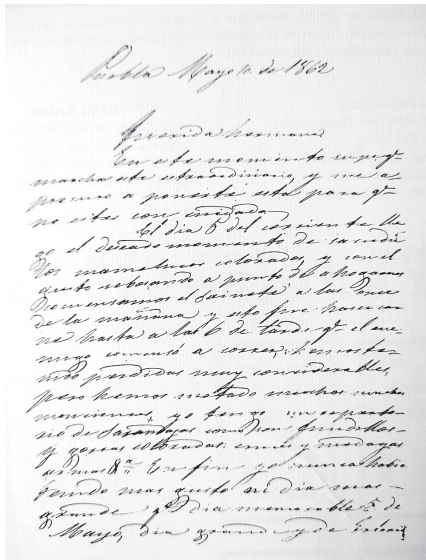 Puebla Mayo 10 de 1862
Querida hermana
En este momento supe qe
marcha este extraordinario, y me a-
presuro a ponerte esta para qe
no estes con cuidado
El dia 5 del corriente lle
go el deseado momento de sacudir
los mamelucos colorados, y con el
gusto rebosando a punto de ahogarnos
comensamos el Sainete a las Once
de la mañana y esto fue hacer car
ne hasta a las 6 de la tarde qe el ene
migo comensó a correr: hemos te-
nido perdidas muy considerables,
pero hemos matado muchos, muchos
yo tengo un reperto-
rio de
y gorras coloradas: cruces y medallas
armas &a En fin yo nunca habia
tenido mas gusto ni dia mas
grande qe el dia memorable 5 de
Mayo, dia grande y de